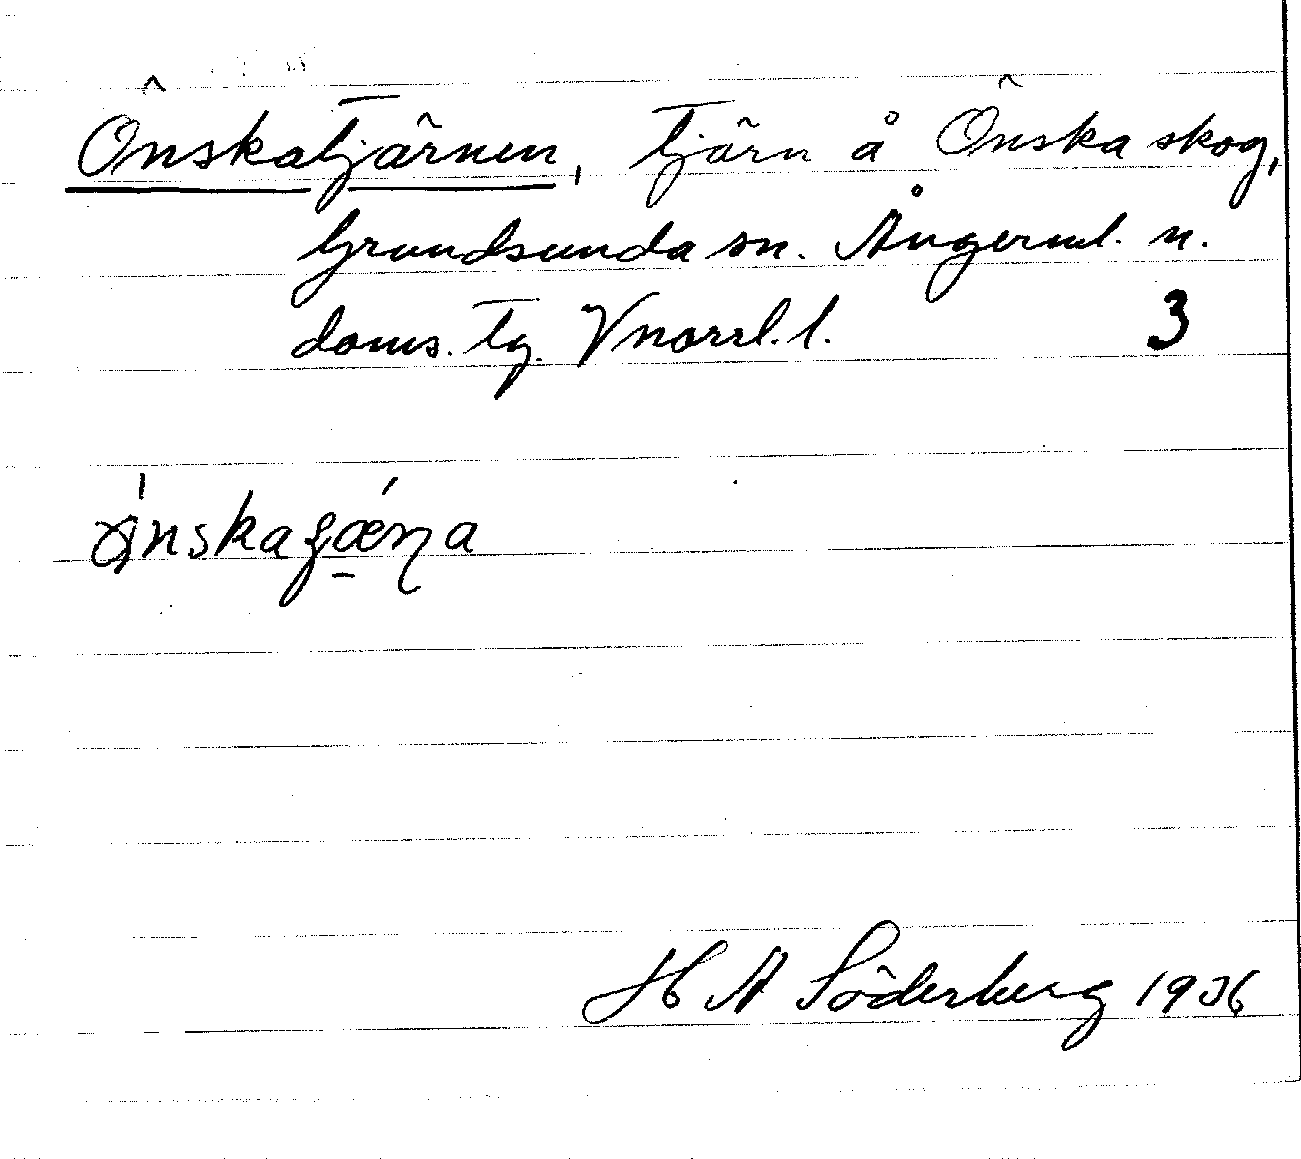 Önskatjärnen, tjärn å Önska skog,
Grundsunda sn. Ångerml. n.
doms. tg. Vnorrl. l. 3
H A Söderberg 1936